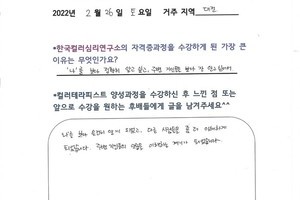 2022년 2월 26일 토요일 거주 지역 대전
*한국컬러심리연구소의 자격증과정을 수강하게 된 가장 큰
이유는 무엇인가요?
'나'를 보다 정확히 알고 싶고, 주변
*컬러테라피스트 양성과정을 수강하신 후 느낀 점 또는
앞으로 수강을 원하는 후배들에게 글을 남겨주세요^^
나를 보다 알게 되었고, 다른 사람들을 좀 더 이해하게
되었습니다. 주변 이해하는 계기가 되었습니다.